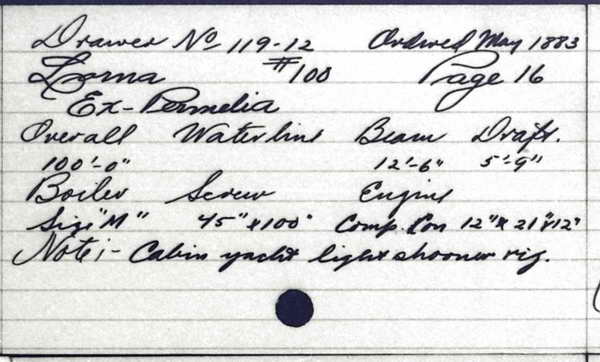 Drawer No 119-12 Ordered May 1883
Lorna #100 Page 16
Ex-Permelia
Overall Waterline Beam Draft.
100'-0" 12'-6" 5'-9"
Boiler Screw Engine
Size "M" 45" x 100" Comp. Con 12" x 21" x 12"
Note;- Cabin yacht light shooner rig.